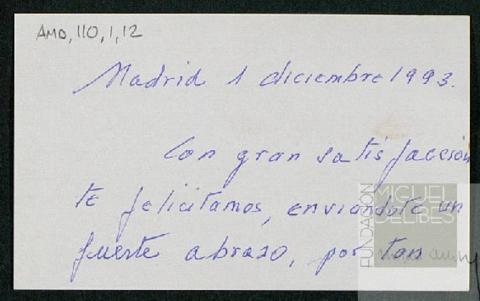 AMD, 110, 1, 12
Madrid 1 diciembre 1993.
Con gran satisfacción
te felicitamos, enviándote un
fuerte abrazo, por tan
FUNDACIÓN
MIGUEL
DELIBES